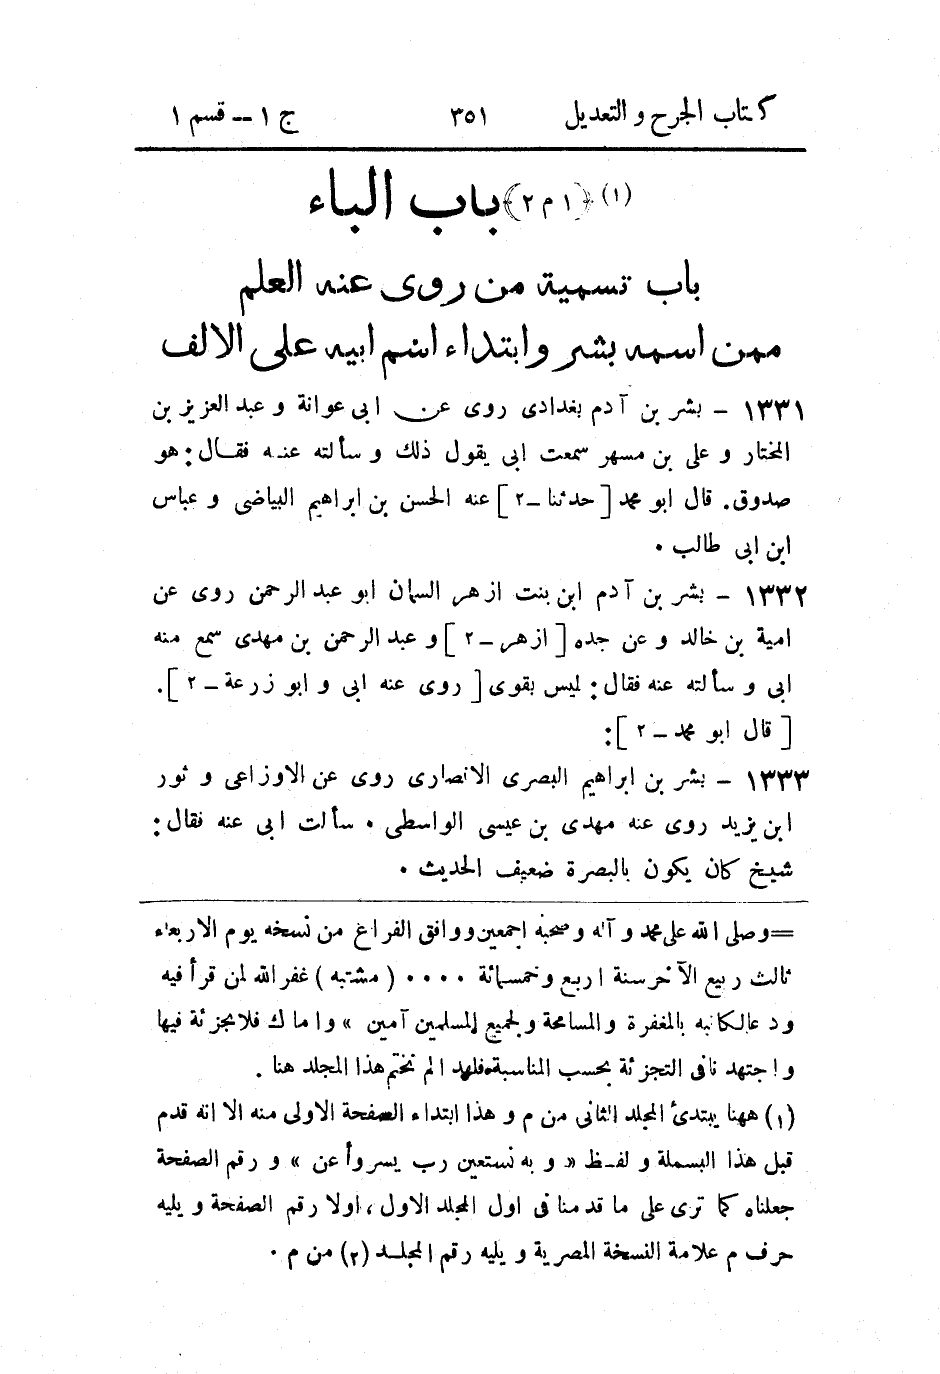 كتاب الجرح و التعديل ٣٥١ ج ١ — قسم ١
(١) ﴿١ م ٢﴾ باب الباء
باب تسمية من روى عنه العلم
ممن اسمه بشر وابتداء اسم ابيه على الالف
١٣٣١ - بشر بن آدم بغدادى روى عن ابى عوانة و عبد العزيز بن
المختار و على بن مسهر سمعت ابى يقول ذلك و سألته عنه فقال: هو
صدوق. قال ابو محمد [حدثنا - ٢] عنه الحسن بن ابراهيم البياضى و عباس
ابن ابى طالب .
١٣٣٢ - بشر بن آدم ابن بنت ازهر السمان ابو عبد الرحمن روى عن
امية بن خالد و عن جده [ازهر - ٢] و عبد الرحمن بن مهدى سمع منه
ابى و سألته عنه فقال: ليس بقوى [روى عنه ابى و ابو زرعة - ٢].
[قال ابو محمد - ٢]:
١٣٣٣ - بشر بن ابراهيم البصرى الانصارى روى عن الاوزاعى و ثور
ابن يزيد روى عنه مهدى بن عيسى الواسطى . سألت ابى عنه فقال:
شيخ كان يكون بالبصرة ضعيف الحديث .
=وصلى الله على محمد و آله وصحبه اجمعين ووافق الفراغ من نسخه يوم الاربعاء
ثالث ربيع الآخر سنة اربع وخمسمائة .... (مشتبه) غفر الله لمن قرأ فيه
ودعا لكاتبه بالمغفرة والمسامحة ولجميع المسلمين آمين » واما ك فلا تجزئة فيها
واجتهدنا فى التجزئة بحسب المناسبة فلهذا لم نختم هذا المجلد هنا .
(١) ههنا يبتدئ المجلد الثانى من م و هذا ابتداء الصفحة الاولى منه الا انه قدم
قبل هذا البسملة و لفظ « و به نستعين رب يسر وأعن » و رقم الصفحة
جعلناه كما ترى على ما قدمنا فى اول المجلد الاول، اولا رقم الصفحة و يليه
حرف م علامة النسخة المصرية و يليه رقم المجلد (٢) من م .